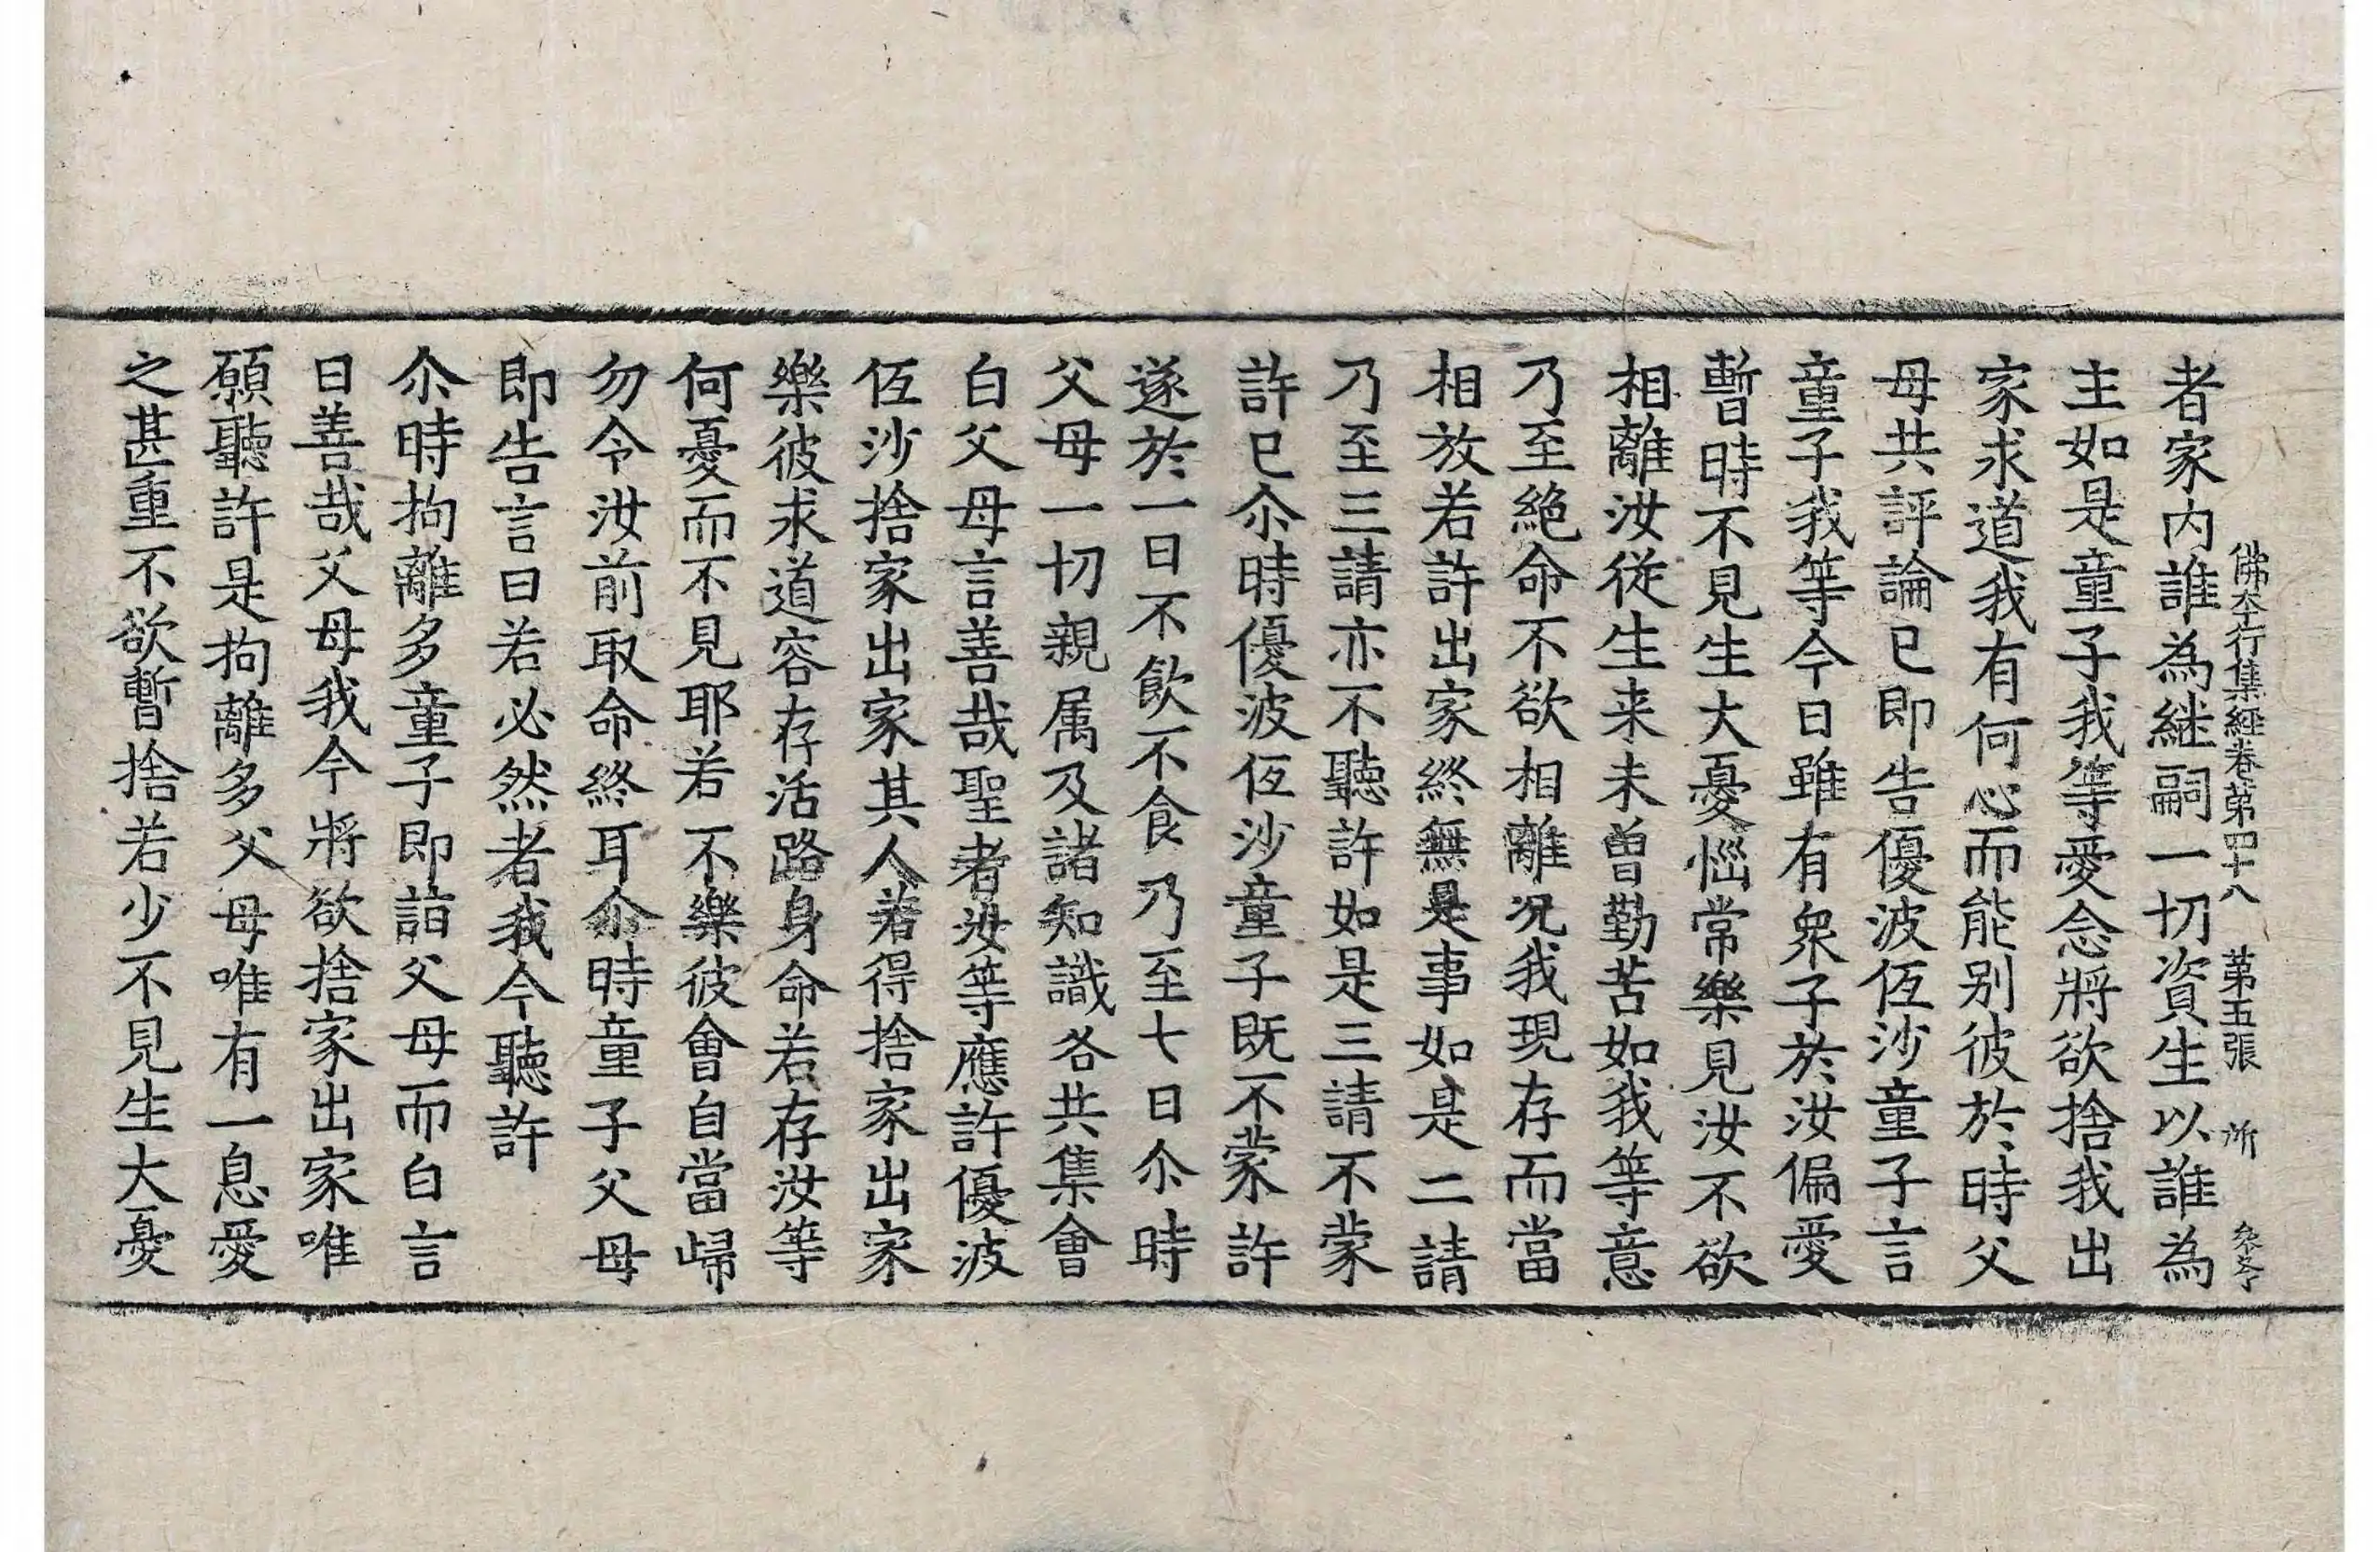 佛本行集經卷第四十八　第五張　所
者家內誰為継嗣一切資生以誰為
主如是童子我等愛念將欲捨我出
家求道我有何心而能別彼於時父
母共評論已即告優波低沙童子言
童子我等今日雖有衆子於汝偏愛
暫時不見生大憂惱常樂見汝不欲
相離汝從生来未曾勤苦如我等意
乃至絕命不欲相離况我現存而當
相放若許出家終無是事如是二請
乃至三請亦不聽許如是三請不蒙
許已尒時優波低沙童子既不蒙許
遂於一日不飲不食乃至七日尒時
父母一切親属及諸知識各共集會
白父母言善哉聖者汝等應許優波
低沙捨家出家其人若得捨家出家
樂彼求道容存活路身命若存汝等
何憂而不見耶若不樂彼會自當歸
勿令汝前取命終耳尒時童子父母
即告言曰若必然者我今聽許
尒時拘離多童子即詣父母而白言
曰善哉父母我今將欲捨家出家唯
願聽許是拘離多父母唯有一息愛
之甚重不欲暫捨若少不見生大憂